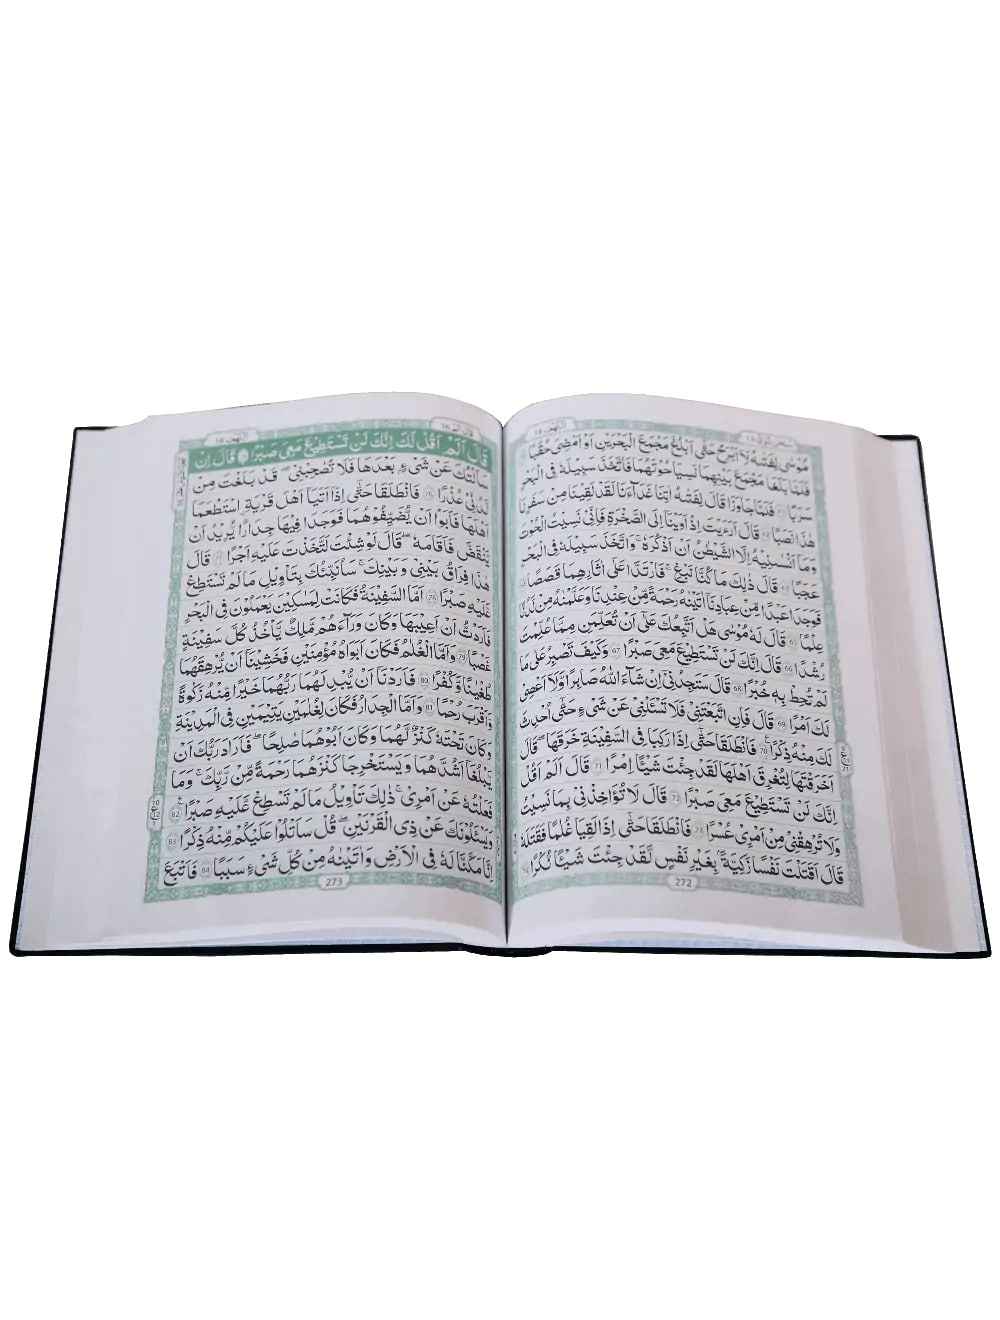 سبحن الذی ١٥
الکهف ١٨
مُوْسٰى لِفَتٰىهُ لَاۤ اَبْرَحُ حَتّٰۤى اَبْلُغَ مَجْمَعَ الْبَحْرَيْنِ اَوْ اَمْضِيَ حُقُبًا
فَلَمَّا بَلَغَا مَجْمَعَ بَيْنِهِمَا نَسِيَا حُوْتَهُمَا فَاتَّخَذَ سَبِيْلَهٗ فِى الْبَحْرِ
سَرَبًا فَلَمَّا جَاوَزَا قَالَ لِفَتٰىهُ اٰتِنَا غَدَآءَنَا لَقَدْ لَقِيْنَا مِنْ سَفَرِنَا
هٰذَا نَصَبًا قَالَ اَرَءَيْتَ اِذْ اَوَيْنَاۤ اِلَى الصَّخْرَةِ فَاِنِّىْ نَسِيْتُ الْحُوْتَ
وَمَاۤ اَنْسٰنِيْهُ اِلَّا الشَّيْطٰنُ اَنْ اَذْكُرَهٗ ۚ وَاتَّخَذَ سَبِيْلَهٗ فِى الْبَحْرِ
عَجَبًا قَالَ ذٰلِكَ مَا كُنَّا نَبْغِ ۖ فَارْتَدَّا عَلٰۤى اٰثَارِهِمَا قَصَصًا
فَوَجَدَا عَبْدًا مِّنْ عِبَادِنَاۤ اٰتَيْنٰهُ رَحْمَةً مِّنْ عِنْدِنَا وَعَلَّمْنٰهُ مِنْ لَّدُنَّا
عِلْمًا 65 قَالَ لَهٗ مُوْسٰى هَلْ اَتَّبِعُكَ عَلٰۤى اَنْ تُعَلِّمَنِ مِمَّا عُلِّمْتَ
رُشْدًا 66 قَالَ اِنَّكَ لَنْ تَسْتَطِيْعَ مَعِىَ صَبْرًا 67 وَكَيْفَ تَصْبِرُ عَلٰى مَا
لَمْ تُحِطْ بِهٖ خُبْرًا 68 قَالَ سَتَجِدُنِىْۤ اِنْ شَآءَ اللّٰهُ صَابِرًا وَّلَاۤ اَعْصِىْ
لَكَ اَمْرًا 69 قَالَ فَاِنِ اتَّبَعْتَنِىْ فَلَا تَسْـَٔلْنِىْ عَنْ شَىْءٍ حَتّٰۤى اُحْدِثَ
لَكَ مِنْهُ ذِكْرًا 70 فَانْطَلَقَا حَتّٰۤى اِذَا رَكِبَا فِى السَّفِيْنَةِ خَرَقَهَا ۖ قَالَ
اَخَرَقْتَهَا لِتُغْرِقَ اَهْلَهَا لَقَدْ جِئْتَ شَيْـًٔا اِمْرًا 71 قَالَ اَلَمْ اَقُلْ
اِنَّكَ لَنْ تَسْتَطِيْعَ مَعِىَ صَبْرًا 72 قَالَ لَا تُؤَاخِذْنِىْ بِمَا نَسِيْتُ
وَلَا تُرْهِقْنِىْ مِنْ اَمْرِىْ عُسْرًا 73 فَانْطَلَقَا حَتّٰۤى اِذَا لَقِيَا غُلٰمًا فَقَتَلَهٗ
قَالَ اَقَتَلْتَ نَفْسًا زَكِيَّةً ۢ بِغَيْرِ نَفْسٍ لَّقَدْ جِئْتَ شَيْـًٔا نُّكْرًا
272
قال الم ١٦
الکهف ١٨
قَالَ اَلَمْ اَقُلْ لَّكَ اِنَّكَ لَنْ تَسْتَطِيْعَ مَعِىَ صَبْرًا قَالَ اِنْ
سَاَلْتُكَ عَنْ شَىْءٍ ۢ بَعْدَهَا فَلَا تُصٰحِبْنِىْ ۚ قَدْ بَلَغْتَ مِنْ
لَّدُنِّىْ عُذْرًا 76 فَانْطَلَقَا حَتّٰۤى اِذَاۤ اَتَيَاۤ اَهْلَ قَرْيَةِ ۨ اسْتَطْعَمَاۤ
اَهْلَهَا فَاَبَوْا اَنْ يُّضَيِّفُوْهُمَا فَوَجَدَا فِيْهَا جِدَارًا يُّرِيْدُ اَنْ
يَّنْقَضَّ فَاَقَامَهٗ ۖ قَالَ لَوْ شِئْتَ لَتَّخَذْتَ عَلَيْهِ اَجْرًا قَالَ
هٰذَا فِرَاقُ بَيْنِىْ وَبَيْنِكَ ۚ سَاُنَبِّئُكَ بِتَاْوِيْلِ مَا لَمْ تَسْتَطِعْ
عَّلَيْهِ صَبْرًا 78 اَمَّا السَّفِيْنَةُ فَكَانَتْ لِمَسٰكِيْنَ يَعْمَلُوْنَ فِى الْبَحْرِ
فَاَرَدْتُّ اَنْ اَعِيْبَهَا وَكَانَ وَرَآءَهُمْ مَّلِكٌ يَّاْخُذُ كُلَّ سَفِيْنَةٍ
غَصْبًا 79 وَاَمَّا الْغُلٰمُ فَكَانَ اَبَوٰهُ مُؤْمِنَيْنِ فَخَشِيْنَاۤ اَنْ يُّرْهِقَهُمَا
طُغْيَانًا وَّكُفْرًا 80 فَاَرَدْنَاۤ اَنْ يُّبْدِلَهُمَا رَبُّهُمَا خَيْرًا مِّنْهُ زَكٰوةً
وَّاَقْرَبَ رُحْمًا 81 وَاَمَّا الْجِدَارُ فَكَانَ لِغُلٰمَيْنِ يَتِيْمَيْنِ فِى الْمَدِيْنَةِ
وَكَانَ تَحْتَهٗ كَنْزٌ لَّهُمَا وَكَانَ اَبُوْهُمَا صَالِحًا ۚ فَاَرَادَ رَبُّكَ اَنْ
يَّبْلُغَاۤ اَشُدَّهُمَا وَيَسْتَخْرِجَا كَنْزَهُمَا رَحْمَةً مِّنْ رَّبِّكَ ۚ وَمَا
فَعَلْتُهٗ عَنْ اَمْرِىْ ۚ ذٰلِكَ تَاْوِيْلُ مَا لَمْ تَسْطِعْ عَّلَيْهِ صَبْرًا 82
وَيَسْـَٔلُوْنَكَ عَنْ ذِى الْقَرْنَيْنِ ۖ قُلْ سَاَتْلُوْا عَلَيْكُمْ مِّنْهُ ذِكْرًا 83
اِنَّا مَكَّنَّا لَهٗ فِى الْاَرْضِ وَاٰتَيْنٰهُ مِنْ كُلِّ شَىْءٍ سَبَبًا 84 فَاَتْبَعَ
273